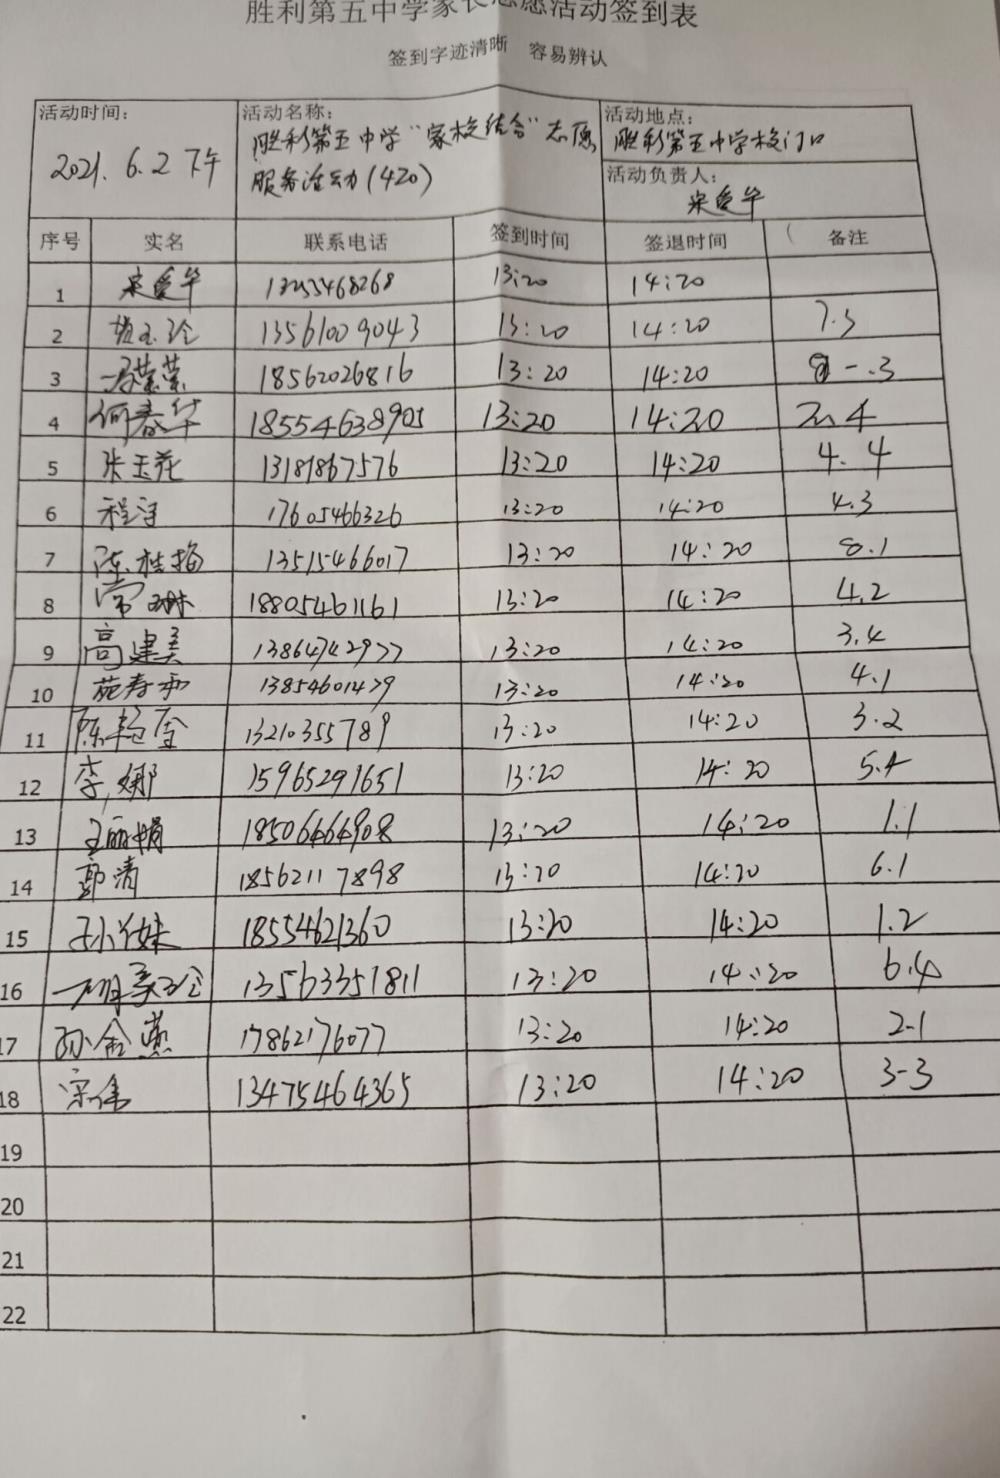 胜利第五中学家长志愿活动签到表
签到字迹清晰 容易辨认
活动时间: 2021.6.2 下午
活动名称: 胜利第五中学"家校结合"志愿
服务活动(420)
活动地点: 胜利第五中学校门口
活动负责人: 宋爱华
序号 实名 联系电话 签到时间 签退时间 备注
1 宋爱华 13255468268 13:20 14:20
2 13561009043 13:20 14:20 7.3
3 冯荣荣 18562026816 13:20 14:20
4 何春华 18554638905 13:20 14:20
5 张玉花 13181867576 13:20 14:20 4.4
6 17605466326 13:20 14:20 4.3
7 陈桂梅 13515466017 13:20 14:20 8.1
8 常琳 18805461161 13:20 14:20 4.2
9 高建美 13864742977 13:20 14:20 3.4
10 苑寿和 13854601479 13:20 14:20 4.1
11 陈艳 13210355789 13:20 14:20 3.2
12 李娜 15965291651 13:20 14:20 5.4
13 王丽娟 18506464908 13:20 14:20 1.1
14 郭清 18562117898 13:20 14:20 6.1
15 18554621360 13:20 14:20 1.2
16 13563351811 13:20 14:20 6.4
17 孙金燕 17862176077 13:20 14:20 2-1
18 宋伟 13475464365 13:20 14:20 3-3
19
20
21
22